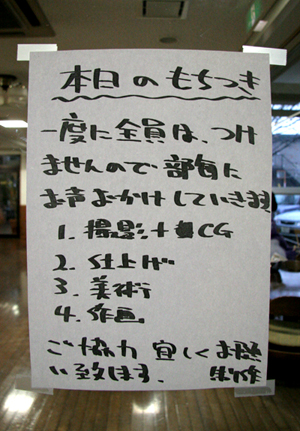 本日のもちつき
一度に全員は、つけ
ませんので部毎に
お声おかけしていきます
1. 撮影+CG
2. 仕上げ
3. 美術
4. 作画
ご協力 宜しくお願
い致します。 制作